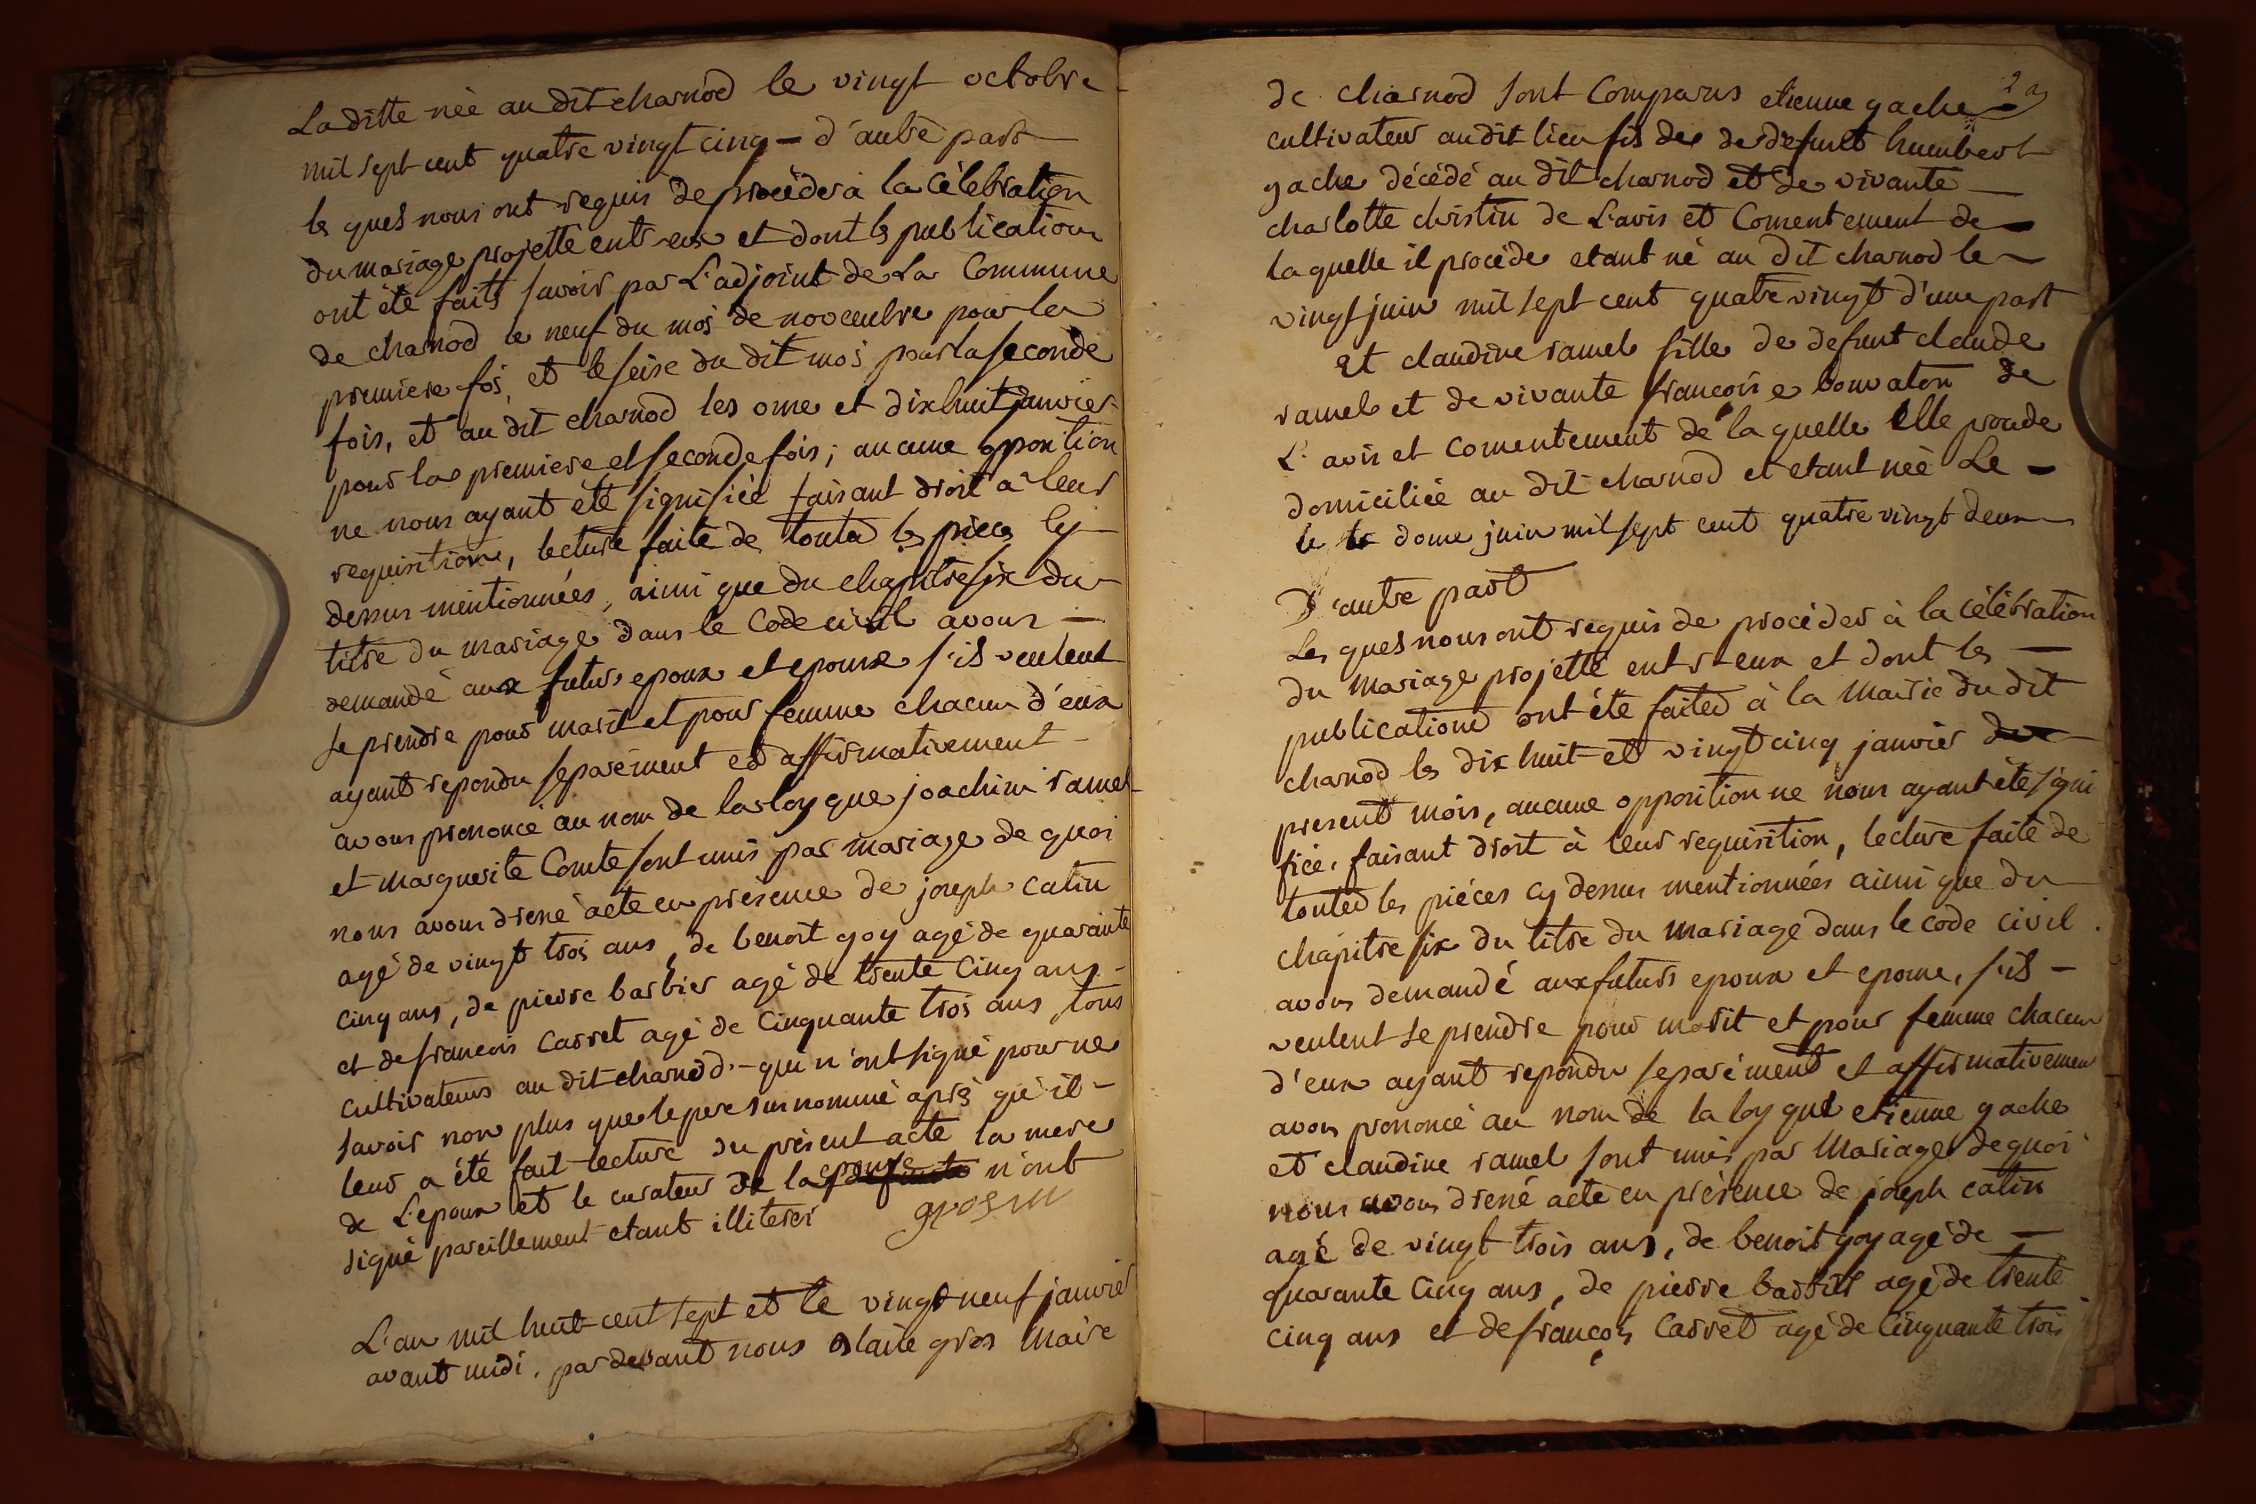 La ditte née au dit charnod le vingt octobre
mil sept cent quatre vingt cinq — d'autre part
les quels nous ont requis de procéder à la célébration
du mariage projetté entr-eux et dont les publications
ont été faits savoir par L'adjoint de La Commune
de charnod le neuf du mois de novembre pour la
premiere fois, et le seise du dit mois pour la seconde
fois, et au dit charnod les onse et dix huit janvier
pour la premiere et seconde fois; aucune opposition
ne nous ayant été signifiée faisant droit à leur
requisitions, lecture faite de toutes les pieces cy
dessus mentionnées, ainsi que du chapitre six du
titre du mariage dans le Code civil avons —
demandé aux futurs epoux et epouse s'ils veulent
se prendre pour marit et pour femme chacun d'eux
ayant repondu separément et affirmativement —
avons prononcé au nom de la loy que joachim ramel
et marguerite Comte sont unis par mariage de quoi
nous avons dressé acte en présence de joseph catin
agé de vingt trois ans, de benoit goy agé de quarante
cinq ans, de pierre barbier agé de trente cinq ans —
et de francois Carret agé de Cinquante trois ans tous
cultivateurs au dit charnod. — qui n'ont signé pour ne
savoir non plus que le pere surnommé après qu'il —
leur a été fait lecture du présent acte la mere
de L'epoux et le curateur de la epouse n'ont
signé pareillement etant illiterés
gros m
L'an mil huit cent sept et le vingt neuf janvier
avant midi. par devant nous claire gros Maire
2
de charnod sont Comparus etienne gache
cultivateur au dit lieu fis de de defunt humbert
gache décédé au dit charnod et de vivante —
charlotte christin de L'avis et Consentement de —
la quelle il procéde etant né au dit charnod le —
vingt juin mil sept cent quatre vingt d'une part
Et claudine ramel fille de defunt claude
ramel et de vivante françoise bonvaton de
L'avis et consentement de la quelle Elle procede
domiciliée au dit charnod et etant née Le —
le douse juin mil sept cent quatre vingt deux
D'autre part
Les quels nous ont requis de procéder à la célébration
du mariage projetté entr-eux et dont les —
publications ont été faites à la Mairie du dit
charnod les dix huit et vingt cinq janvier du
present mois, aucune opposition ne nous ayant été signi
fiée, faisant droit à leur requisition, lecture faite de
toutes les piéces cy dessus mentionnées ainsi que du
chapitre six du titre du mariage dans le code civil.
avons demandé aux futurs epoux et epouse, s'ils —
veulent se prendre pour marit et pour femme chacun
d'eux ayant repondu separément et affirmativement
avons prononcé au nom de la loy que etienne gache
et claudine ramel sont unis par Mariage de quoi
nous avons dressé acte en présence de joseph catin
agé de vingt trois ans, de benoit goy agé de —
quarante Cinq ans, de pierre barbier agé de trente
cinq ans et de françois Carret agé de Cinquante trois